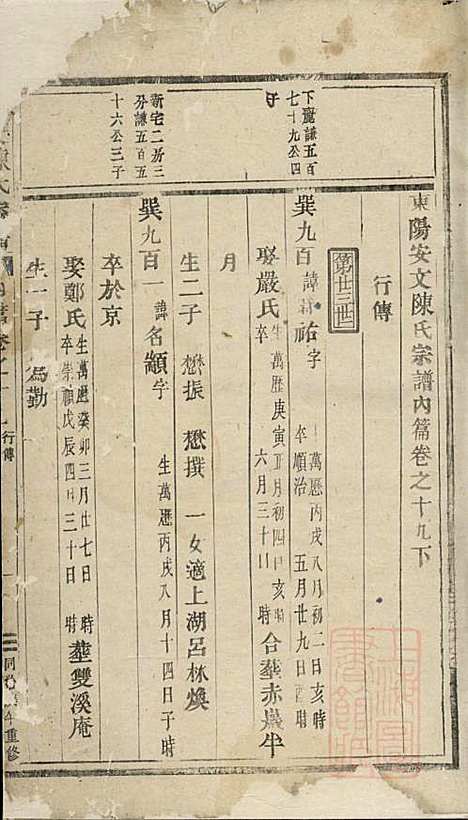 東陽安文陳氏宗譜內篇卷之十九下
行傳
第廿三世
下廳謙五百
七十九公四
子
巽九百 諱 祐 字 萬歷丙戌八月初二日亥時
卒順治 五月廿九日酉時
娶嚴氏 生萬歷庚寅正月初四日亥時
卒 六月三十日 時 合塟赤巖牛
月
生二子 懋振 懋撰 一女適上湖呂林煥
新宅二房三
分謙五百五
十六公三子
巽九百一 諱名顓 字 生萬歷丙戌八月十四日子時
卒於京
娶鄭氏 生萬歷癸卯三月廿七日 時
卒崇禎戊辰四月三十日 時 塟雙溪庵
生一子 為勤
陳氏宗 內篇卷之十 行傳 一 同治 年重修